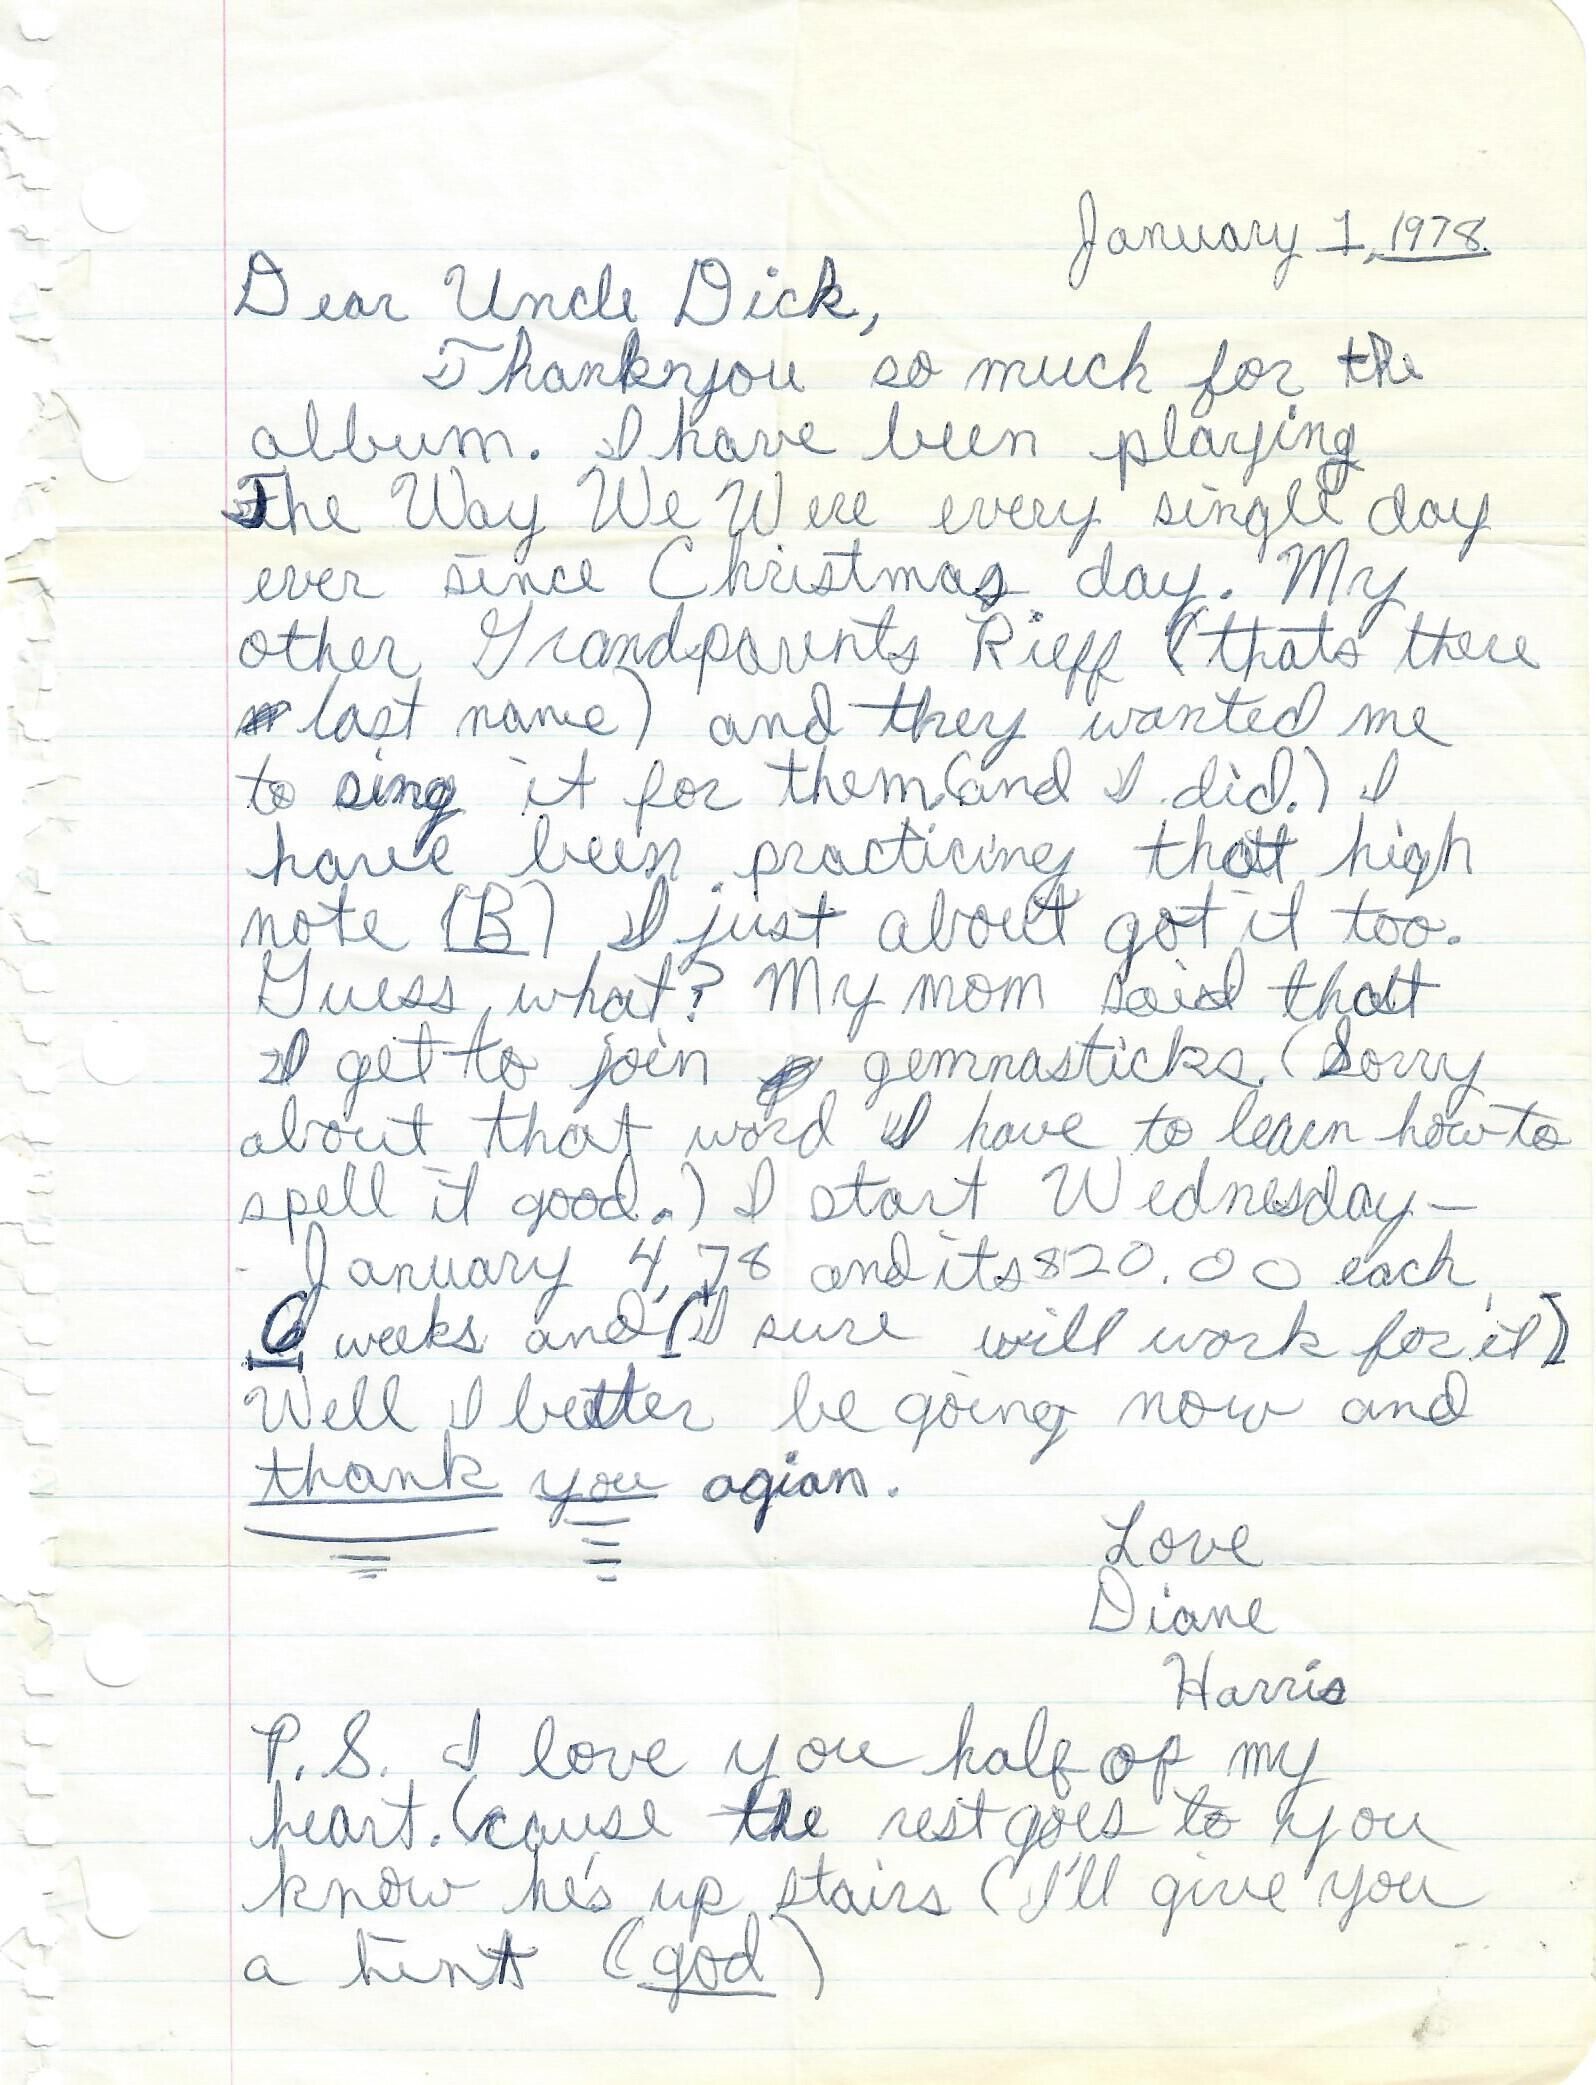 January 1, 1978.
Dear Uncle Dick,
Thankyou so much for the
album. I have been playing
The Way We Were every single day
ever since Christmas day. My
other Grandparents Rieff (thats there
last name) and they wanted me
to sing it for them, (and I did.) I
have been practicing that high
note (B) I just about got it too.
Guess what? My mom said that
I get to join gemnasticks. (Sorry
about that word I have to learn how to
spell it good.) I start Wednesday-
January 4, 78 and its $20.00 each
6 weeks and (I sure will work for it)
Well I better be going now and
thank you agian.
Love
Diane
Harris
P.S. I love you half of my
heart. (cause the rest goes to you
know he's up stairs (I'll give you
a hint (god)